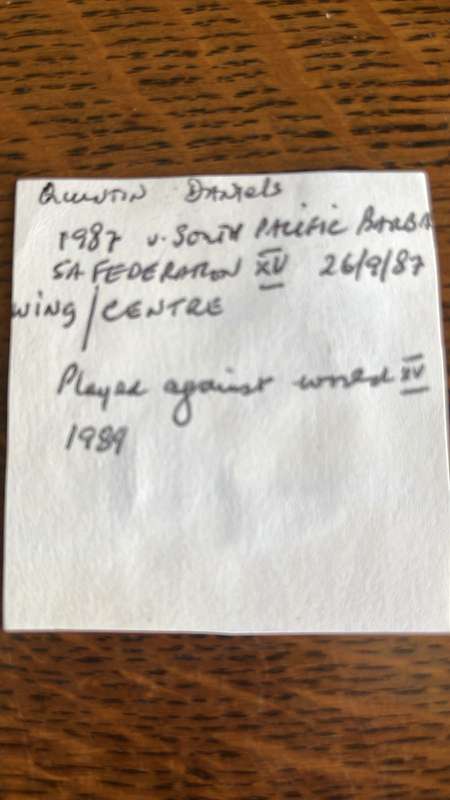 Quintin Daniels
1987 v. South Pacific Barba
SA Federation XV 26/9/87
Wing/Centre
Played against world XV
1989